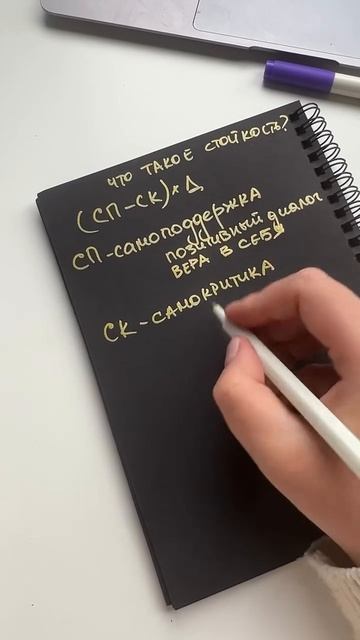 ЧТО ТАКОЕ СТОЙКОСТЬ?
(СП-СК)×Д
СП-самоподдержка
позитивный диалог
ВЕРА В СЕБЯ
СК-САМОКРИТИКА